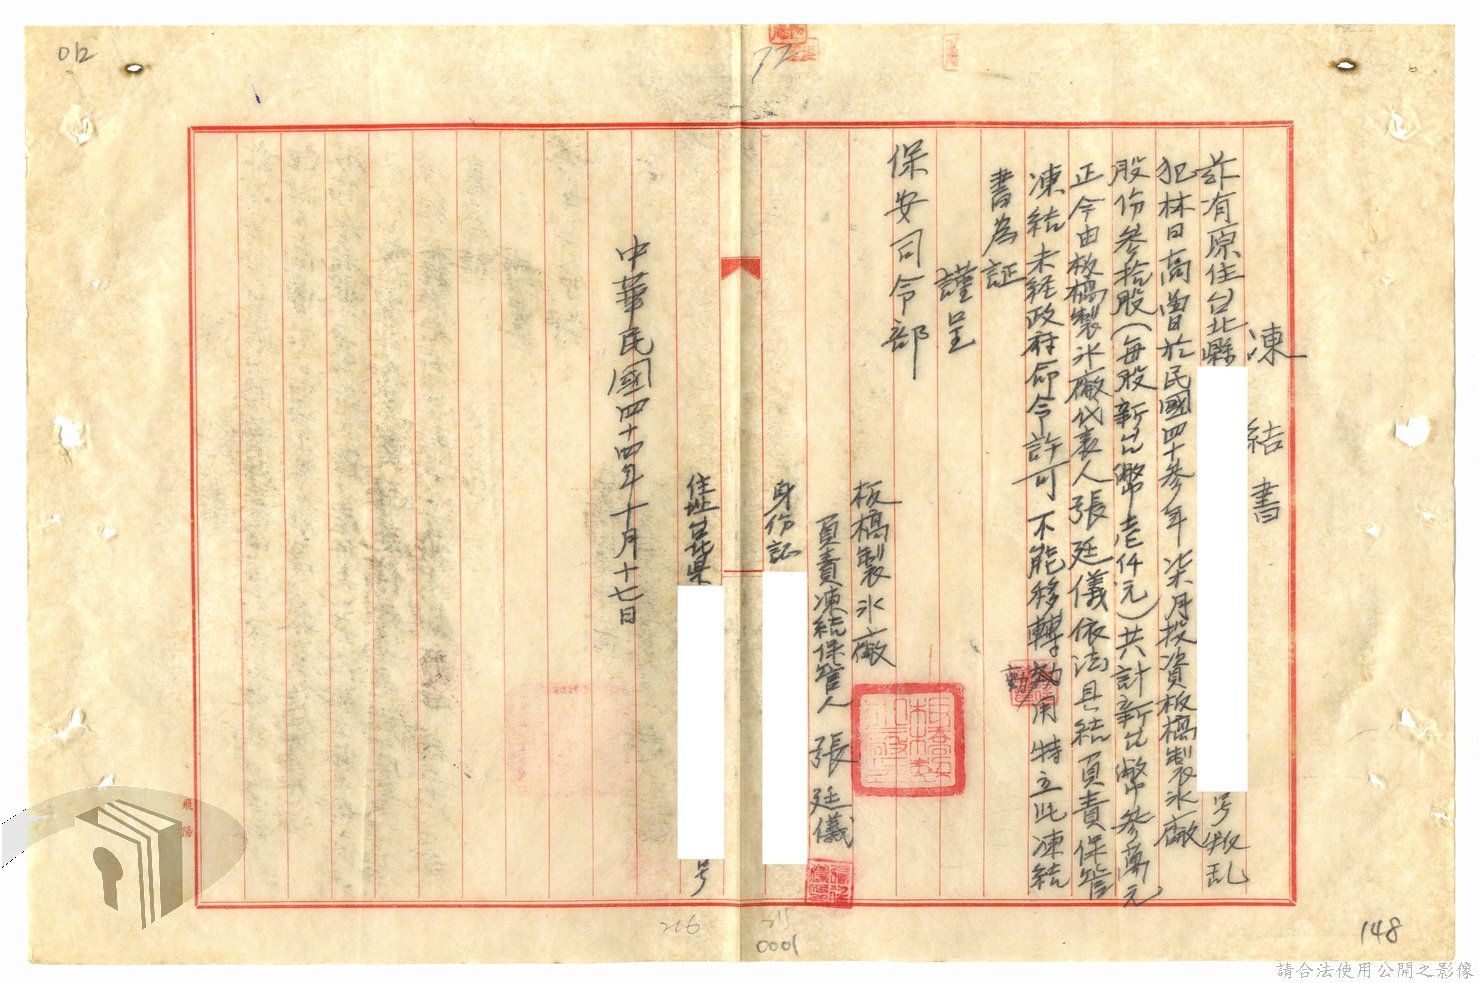 凍結書
茲有原住台北縣
号叛乱
犯林日高曾於民國四十參年柒月投資板橋製氷廠
股份參拾股(每股新台幣壱仟元)共計新台幣參萬元
正今由板橋製氷廠代表人張廷儀依法具結負責保管
凍結未經政府命令許可不能移轉効用特立此凍結
動
書為証
謹呈
保安司令部
板橋製氷廠
負責凍結保管人張廷儀
身份証
住址台北県
号
中華民國四十四年十月十七日
012
72
216
215
0001
148
飛陽
請合法使用公開之影像